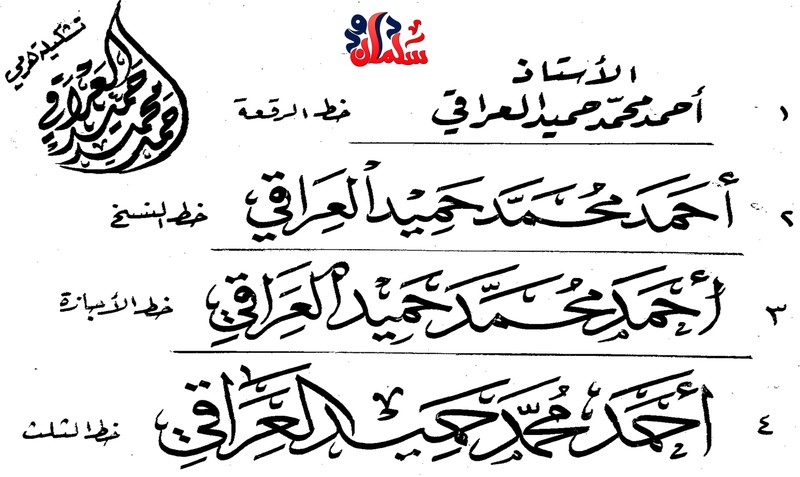 سلمان داود
تشكيلة هرمي
أحمد محمد حميد العراقي
الأستاذ
١ أحمد محمّد حميد العراقي خط الرقعة
٢ أَحمَد محُمَّد حَمِيْد العِرَاقي خط النسخ
٣ أَحمَد محُمَّد حَمِيْد العِرَاقي خط الأجازة
٤ أَحمَد محُمَّد حَمِيد العِرَاقي خط الثلث